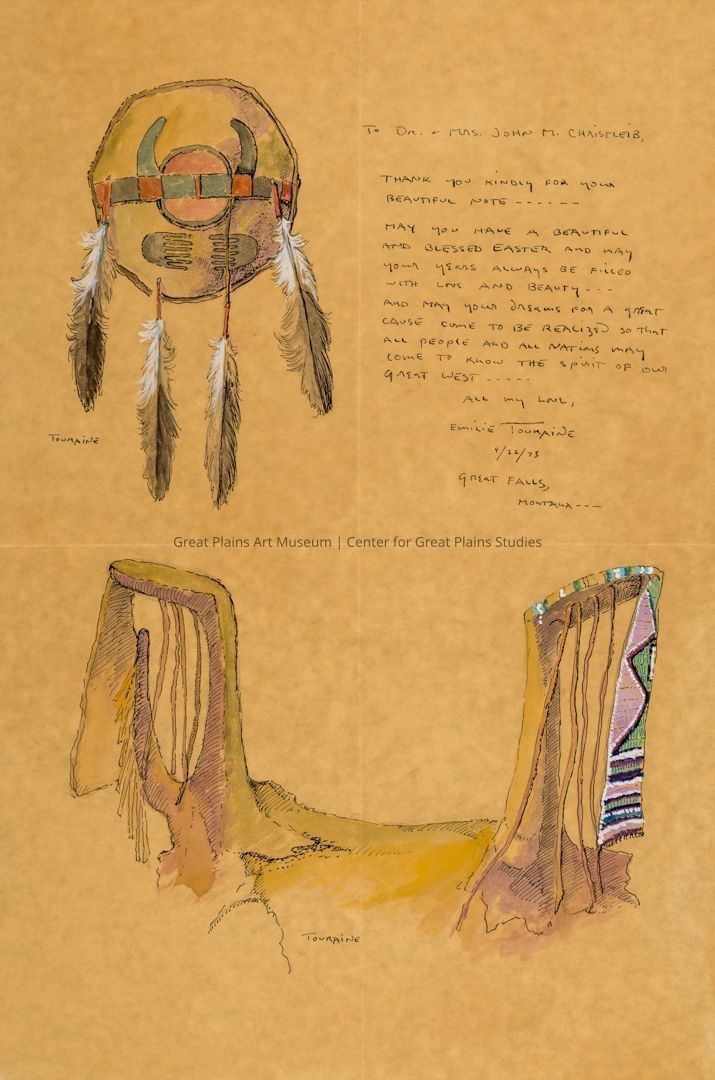 To Dr. + Mrs. John M. Christleib,
Thank you kindly for your
beautiful note ------
May you have a beautiful
and blessed Easter and may
your years always be filled
with love and beauty---
And may your dreams for a great
cause come to be realized so that
all people and all nations may
come to know the spirit of our
Great West -----
All my love,
Emilie Touraine
4/22/73
Great Falls,
Montana ---
Touraine
Great Plains Art Museum | Center for Great Plains Studies
Touraine